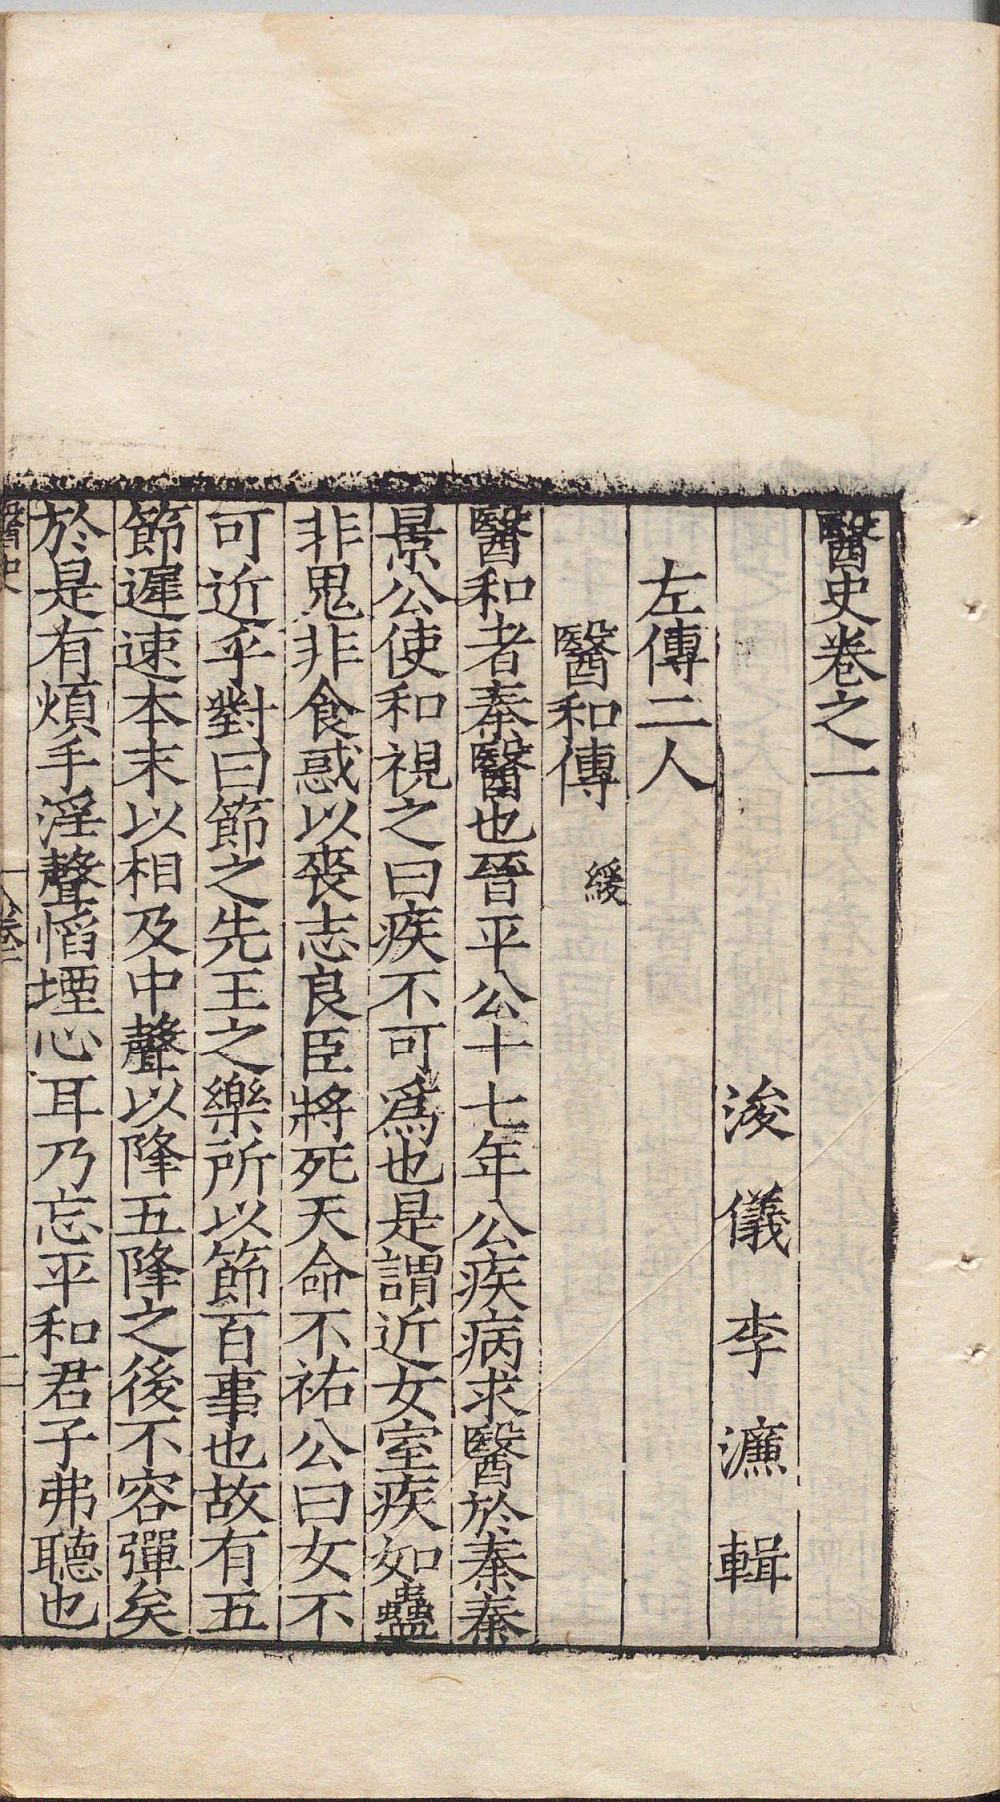 醫史卷之一
浚儀李濂輯
左傳二人
醫和傳 緩
醫和者秦醫也晉平公十七年公疾病求醫於秦秦
景公使和視之曰疾不可為也是謂近女室疾如蠱
非鬼非食惑以喪志良臣將死天命不祐公曰女不
可近乎對曰節之先王之樂所以節百事也故有五
節遲速本末以相及中聲以降五降之後不容彈矣
於是有煩手淫聲慆堙心耳乃忘平和君子弗聽也
醫史 卷一 一